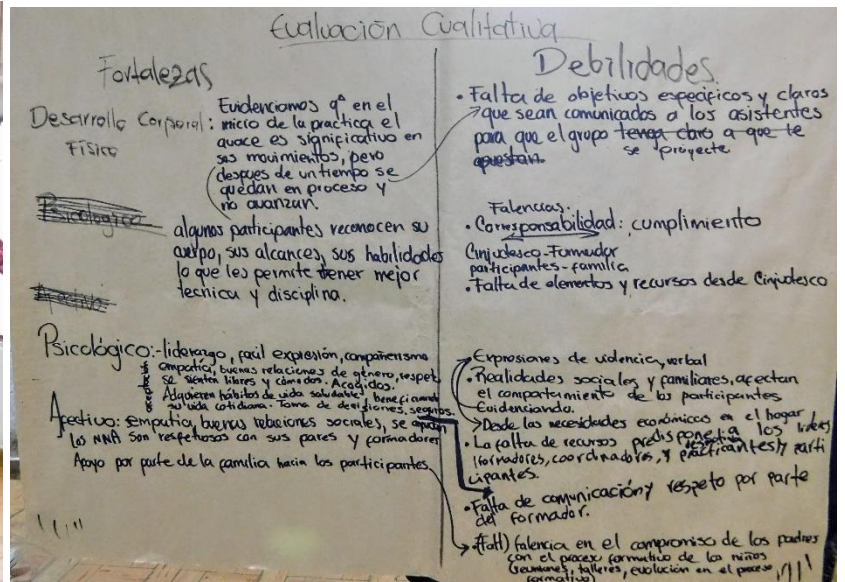 Evaluación Cualitativa
Fortalezas
Desarrollo Corporal:
Físico
Evidenciamos q^e en el
micro de la practica el
avace es significativo en
sus movimientos, pero
despues de un tiempo se
quedan en proceso y
no avanzan.
Psicologico
algunos participantes reconocen su
cuerpo, sus alcances, sus habilidades
lo que les permite tener mejor
tecnica y disciplina.
Psicológico:-liderazgo, facil expresión, compañerismo
empatía, buenas relaciones de género, respet
se sienten libres y cómodos. Acogidos.
aceptación
Adquieren hábitos de vida saludable, beneficiando
su vida cotidiana. Toma de decisiones, seguros.
Afectivo: empatía, buenas relaciones sociales, se apoyan
los NNA son respetosos con sus pares y formadores
Apoyo por parte de la familia hacia los participantes
Debilidades.
• Falta de objetivos específicos y claros
que sean comunicados a los asistentes
para que el grupo tenga claro a que te
apuestan.
se proyecte
Falencias.
• Corresponsabilidad: cumplimiento
Cinjudesco-Formador
participantes-familia
• Falta de elementos y recursos desde Cinjudesco
• Expresiones de violencia, verbal
• Realidades sociales y familiares, afectan
el comportamiento de los participantes
Evidenciando.
Desde las necesidades económicas en el hogar
• La falta de recursos predispone a los lideres
(formadores, coordinadores, y practicantes) y parti
cipantes.
• Falta de comunicación y respeto por parte
del formador.
• (Falt) falencia en el compromiso de los padres
con el proceso formativo de los niños
(reuniones, talleres, evolución en el proceso
formativo)